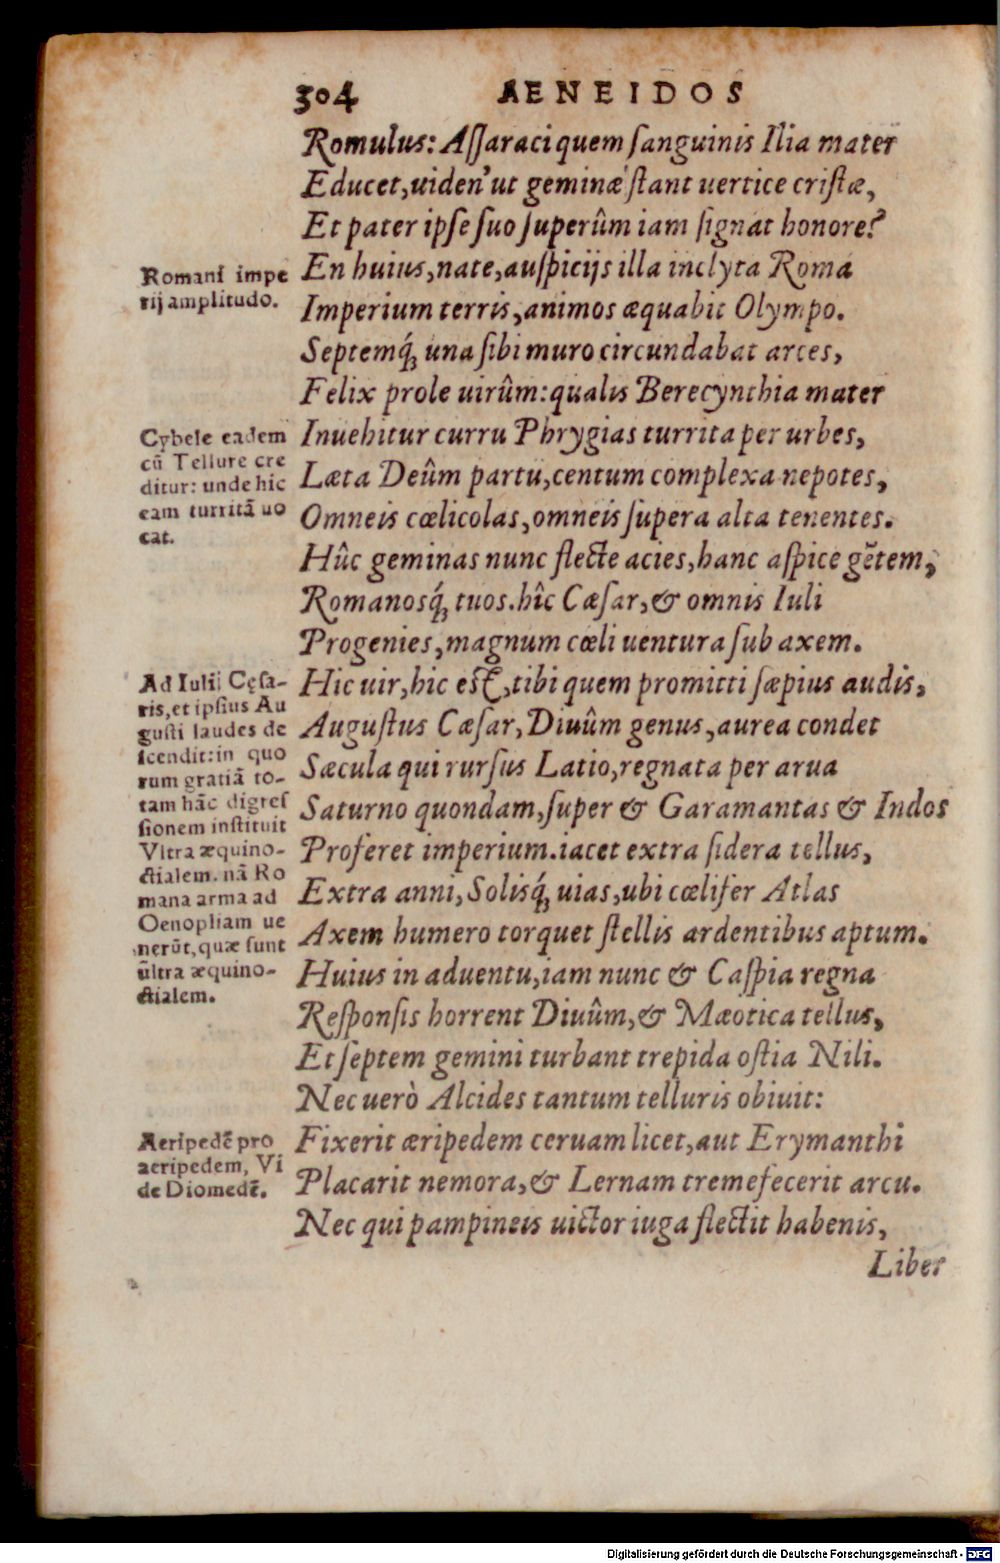 304 AENEIDOS
Romulus: Aſſaraci quem ſanguinis Ilia mater
Educet, uiden' ut geminæ ſtant uertice criſtæ,
Et pater ipſe ſuo ſuperûm iam ſignat honore?
Romani impe
rij amplitudo.
En huius, nate, auſpicijs illa inclyta Roma
Imperium terris, animos æquabit Olympo.
Septemq́; una ſibi muro circundabat arces,
Felix prole uirûm: qualis Berecynthia mater
Cybele eadem
cū Tellure cre
ditur: unde hic
eam turritā uo
cat.
Inuehitur curru Phrygias turrita per urbes,
Læta Deûm partu, centum complexa nepotes,
Omneis cœlicolas, omneis ſupera alta tenentes.
Hûc geminas nunc flecte acies, hanc aſpice gẽtem,
Romanosq́; tuos. hîc Cæſar, & omnis Iuli
Progenies, magnum cœli uentura ſub axem.
Ad Iulij Cęſa-
ris, et ipſius Au
guſti laudes de
ſcendit: in quo
rum gratiā to-
tam hāc digreſ
ſionem inſtituit
Vltra æquino-
ctialem. nā Ro
mana arma ad
Oenopliam ue
nerūt, quæ ſunt
ūltra æquino-
ctialem.
Hic uir, hic eſt, tibi quem promitti ſæpius audis,
Auguſtus Cæſar, Diuûm genus, aurea condet
Sæcula qui rurſus Latio, regnata per arua
Saturno quondam, ſuper & Garamantas & Indos
Proferet imperium. iacet extra ſidera tellus,
Extra anni, Solisq́; uias, ubi cœlifer Atlas
Axem humero torquet ſtellis ardentibus aptum.
Huius in aduentu, iam nunc & Caſpia regna
Reſponſis horrent Diuûm, & Mæotica tellus,
Et ſeptem gemini turbant trepida oſtia Nili.
Nec uerò Alcides tantum telluris obiuit:
Aeripedẽ pro
aeripedem, Vi
de Diomedẽ.
Fixerit æripedem ceruam licet, aut Erymanthi
Placarit nemora, & Lernam tremefecerit arcu.
Nec qui pampineis uictor iuga flectit habenis,
Liber
Digitalisierung gefördert durch die Deutsche Forschungsgemeinschaft - DFG